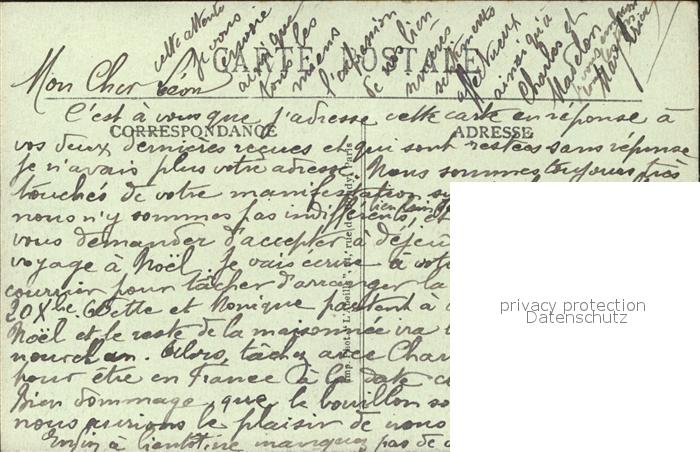 CARTE POSTALE
Mon Cher Léon
C'est à vous que j'adresse cette carte en réponse à
CORRESPONDANCE
ADRESSE
vos deux dernières reçues et qui sont restées sans réponse
je n'avais plus votre adresse. Nous sommes toujours très
touchés de votre manifestation
nous n'y sommes pas indifférents, et
vous demander d'accepter à déjeu
voyage à Noël. je vais écrire à vot
courrier pour tâcher d'arranger la
20 Xbre. et Monique partant à
Noël et le reste de la maisonnée va
nouvel an. Alors, tâchez avec Char
pour être en France à la date
Bien dommage que le bouillon so
nous aurions le plaisir de nous
Enfin à bientôt, ne manquez pas de
cette attente
je vous
envoie
ainsi que
tous les
miens
l'expression
de nos bien
sincères
sentiments
affectueux
ainsi qu'à
Charles et
Madelon
privacy protection
Datenschutz